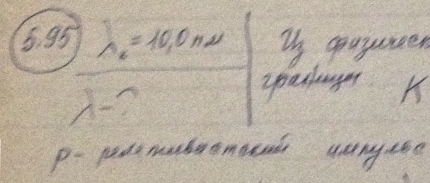 5.95 λ₀ = 10,0 пм Из физическ
границы K
λ - ?
p - релятивистский импульс